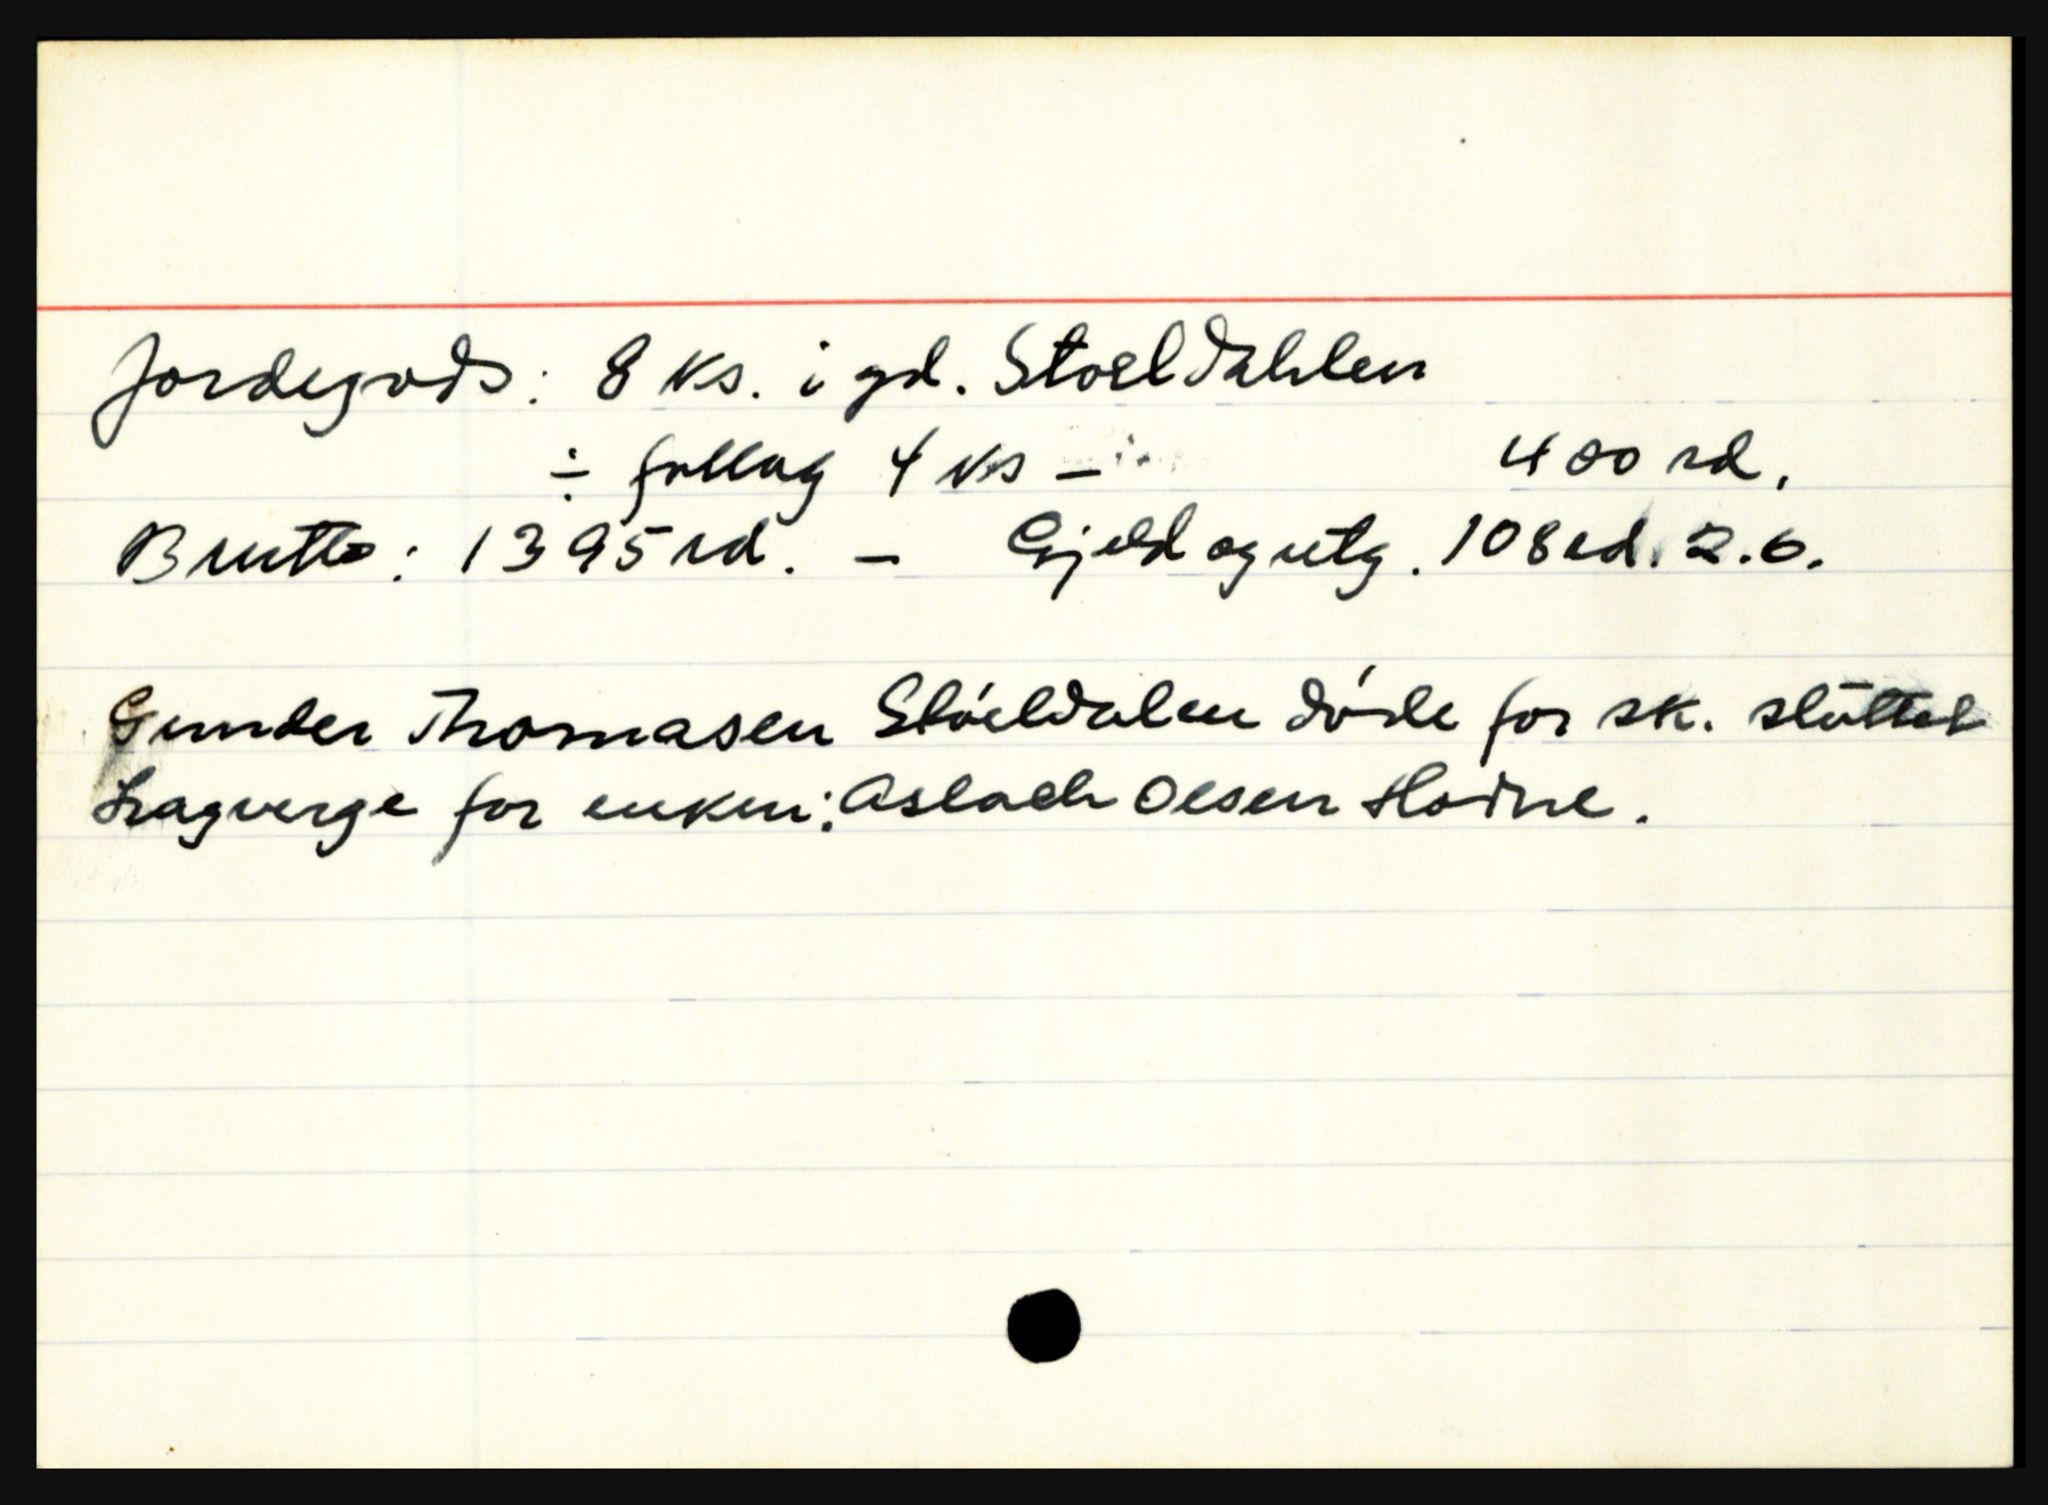 Jordegods: 8 ks. i gd. Stoeldahlen
÷ follug 4 ks – 400 rd.
Brutto: 1395 rd. – Gjeld og utg. 108 rd. 2.6.
Gunder Thomasen Støeldalen døde før sk. sluttet
Lagverge for enken: Aslach Olsen Hodne.